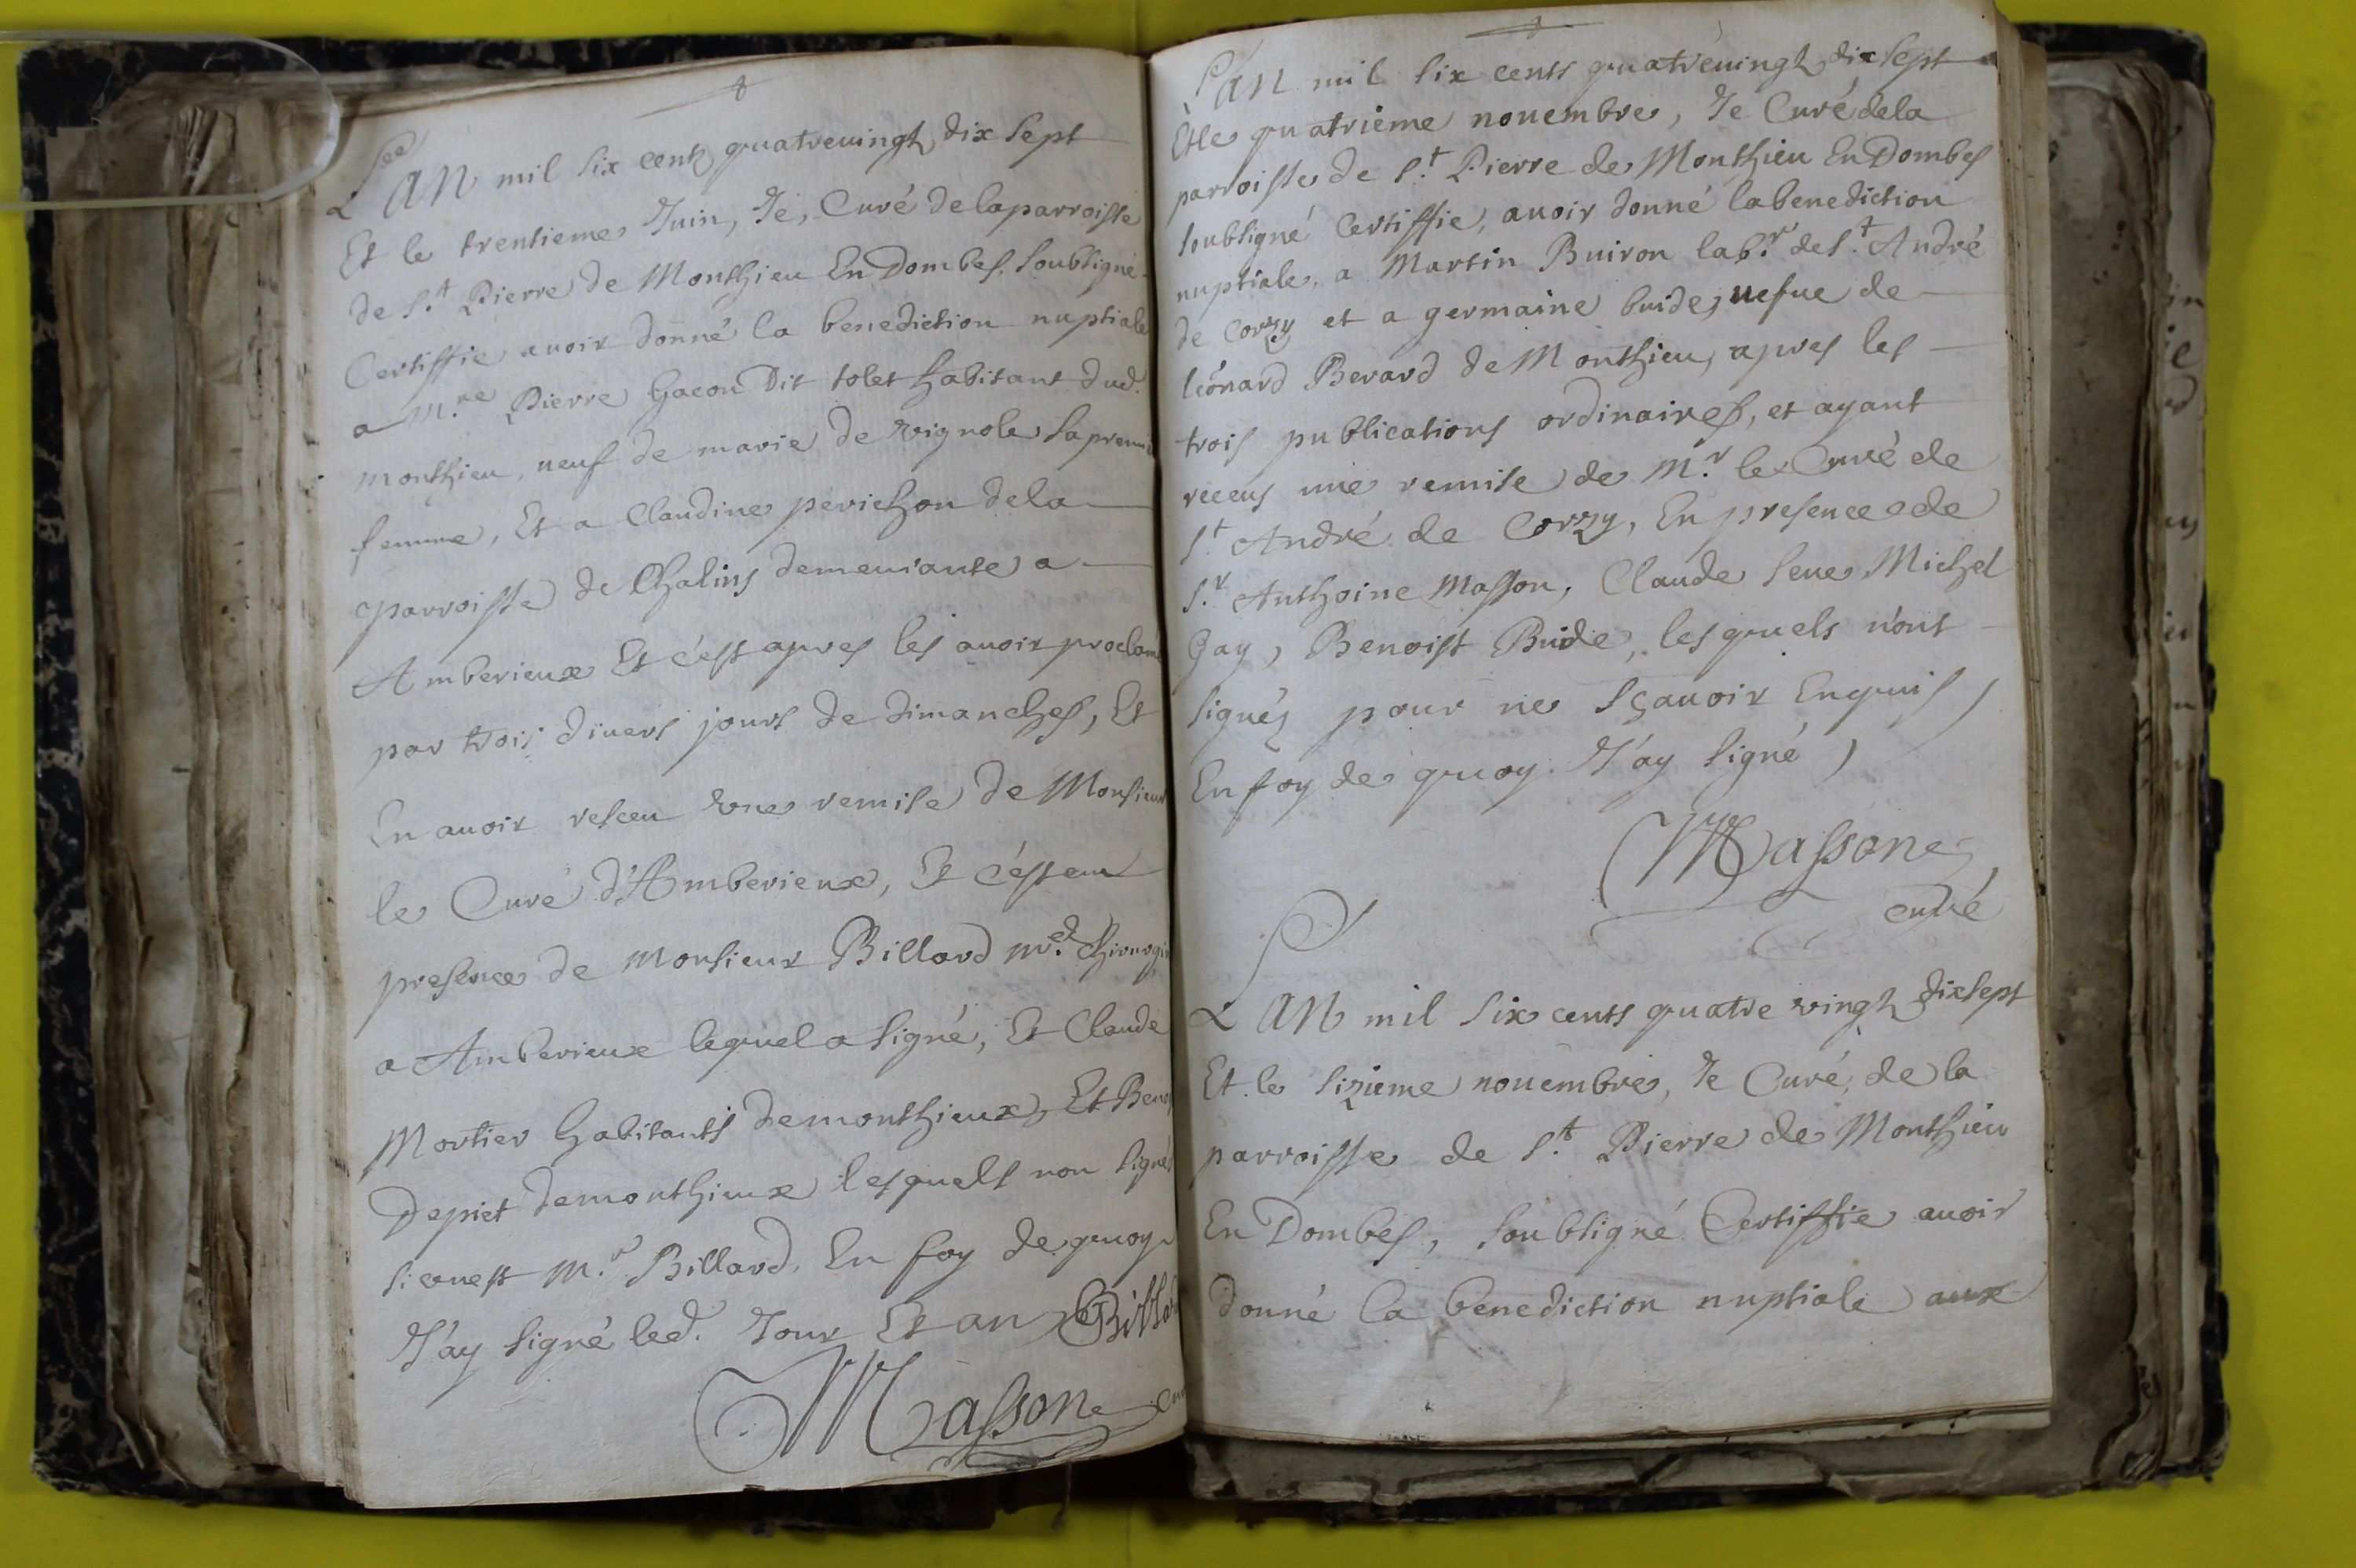 L'AN mil six centz quatrevingtz dix sept
Et le trentieme Juin, Je, Curé de la parroisse
de St. Pierre de Monthieu En Dombes, soubsigné
Certiffie avoir donné la benediction nuptiale
a Mre. Pierre Gacon Dit tolet habitant dud.
monthieu, veuf de marie de vignole sa premi
femme, Et a Claudine perichon de la
parroisse de Chalins demeurante a
Amberieux Et c'est apres les avoir proclamé
par trois divers jours de dimanches, Et
En avoir resceu vne remise de Monsieur
le Curé d'Amberieux, Et c'est en
presence de Monsieur Billard Chirurgi
a Amberieux lequel a signé, Et Claude
Mortier habitants de monthieux, Et Beno
Depiet de monthieux lesquels non signés
si ce nest Mr. Billard, En foy de quoy
J'ay signé led. Jour Et an Billa
Massone cu
L'AN mil six cents quatrevingtz dix sept
Et le quatrieme nouembre, Je Curé de la
parroisse de St. Pierre de Monthieu En Dombes
soubsigné Certiffie, auoir donné la benediction
nuptiale, a Martin Buiron labr. de St. André
de Corzy et a germaine buide, uefue de
léonard Berard de Monthieu, apres les
trois publications ordinaires, et ayant
receus une remise de Mr. le Curé de
St. André de Corzy, En presence de
Sr. Anthoine Masson, Claude Seue Michel
Gay, Benoist Buide, lesquels n'ont
signés pour ne sçauoir Enquis,
En foy de quoy J'ay signé,
Massone
curé
L'AN mil six cents quatre vingtz dixsept
Et le sizieme nouembre, Je Curé, de la
parroisse de St. Pierre de Monthieu
En Dombes, soubsigné Certiffie auoir
donné la benediction nuptiale aux